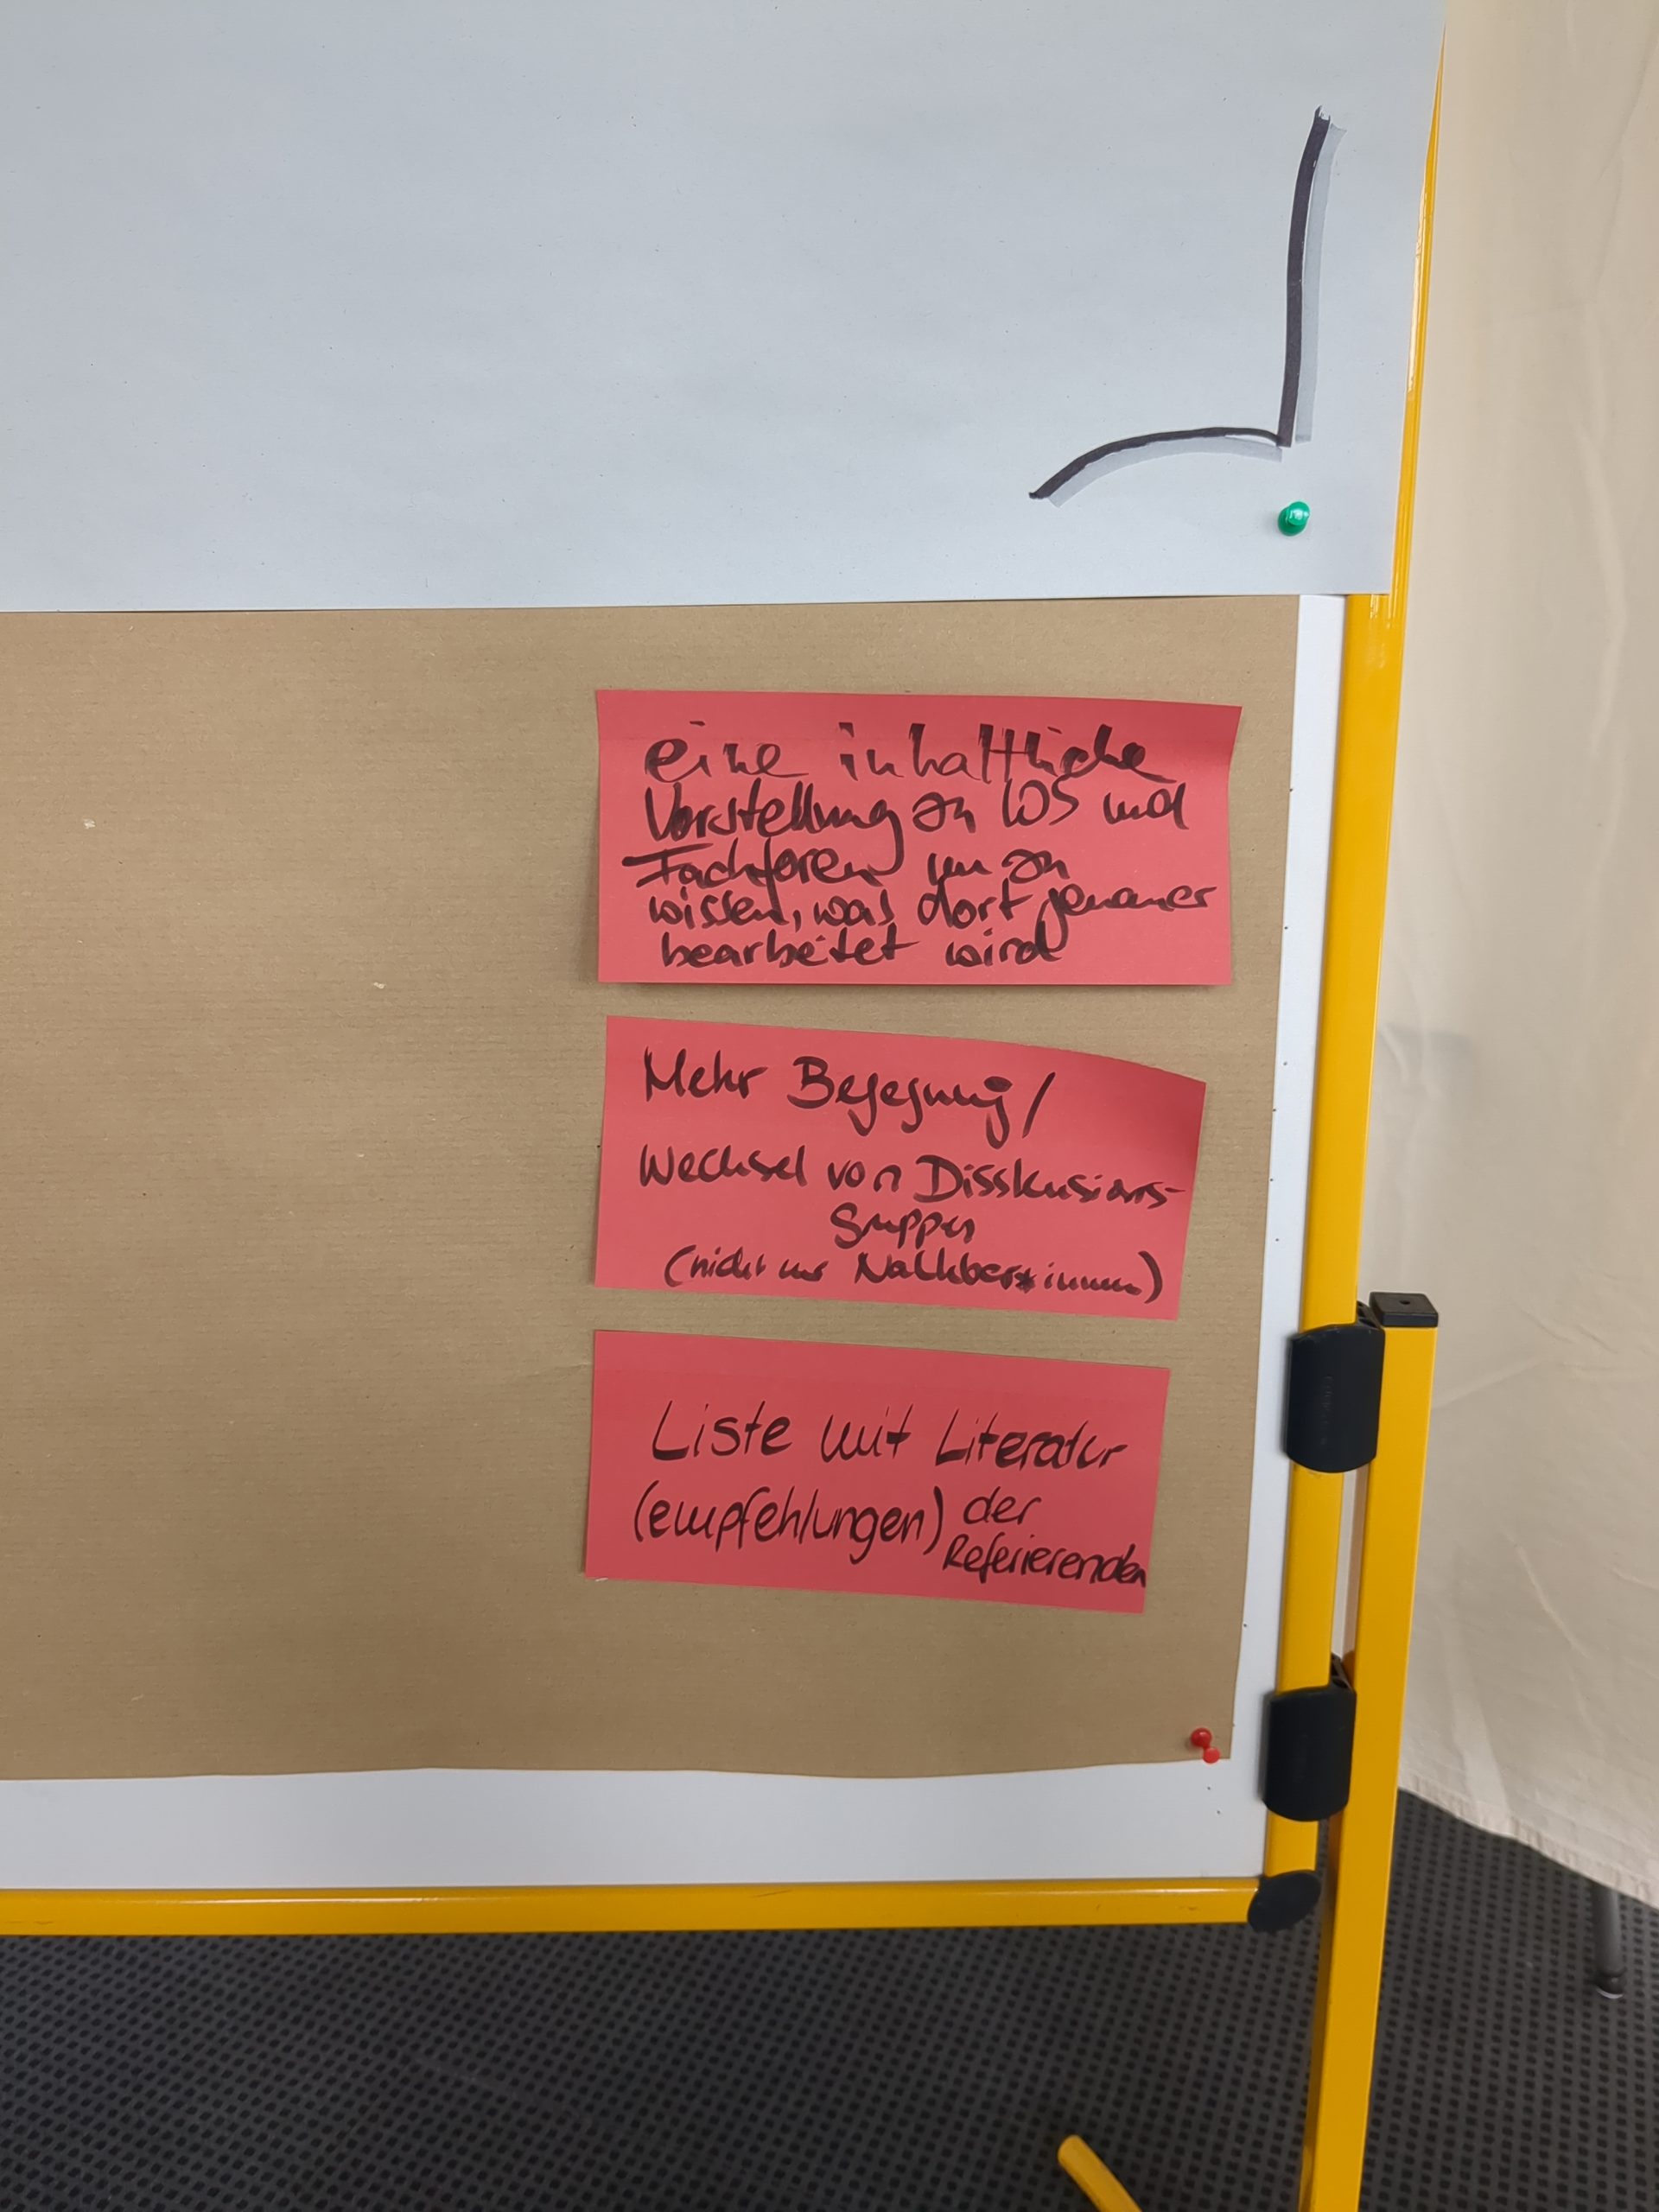 eine inhaltliche
Vorstellung zu WS und
Fachforen um zu
wissen, was dort genauer
bearbeitet wird
Mehr Begegnung/
Wechsel von Disskusions-
gruppen
(nicht nur Nachber*innen)
Liste mit Literatur
(empfehlungen) der
Referierenden